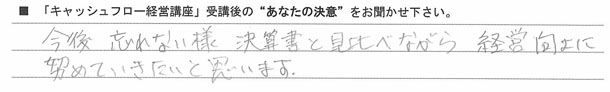 ■ 「キャッシュフロー経営講座」受講後の“あなたの決意”をお聞かせ下さい。
今後 忘れない様 決算書と見比べながら 経営向上に
努めていきたいと思います.